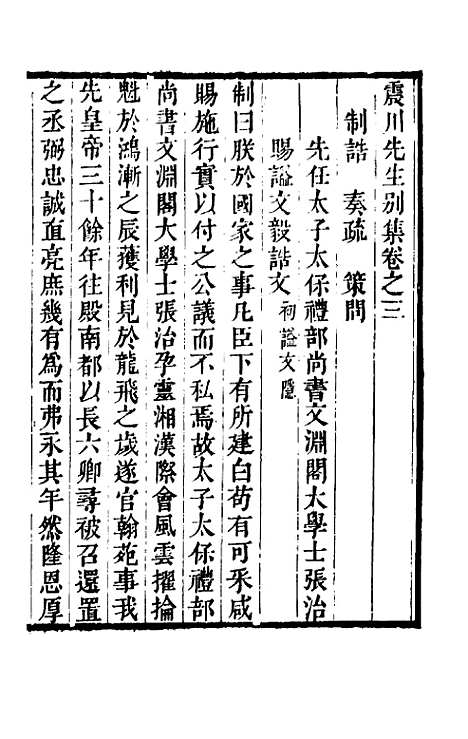 震川先生別集卷之三
制誥　奏疏　策問
先任太子太保禮部尚書文淵閣大學士張治
賜謚文毅誥文初謚文隱
制曰朕於國家之事凡臣下有所建白苟有可釆咸
賜施行實以付之公議而不私焉故太子太保禮部
尚書文淵閣大學士張治孕靈湘漢際會風雲擢掄
魁於鴻漸之辰蒦利見於龍飛之歲遂官翰苑事我
先皇帝三十餘年往殿南都以長六卿尋被召還置
之丞弼忠誠直亮庶幾有爲而弗永其年然隆恩厚